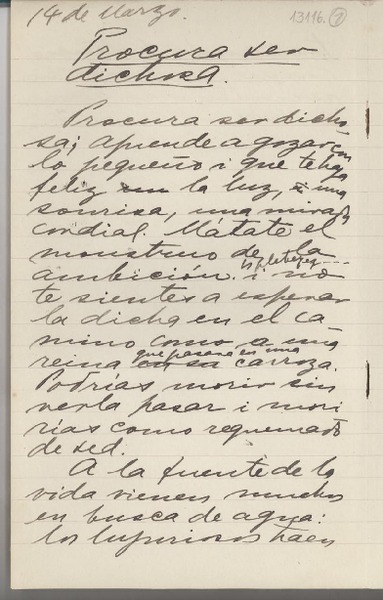 14 de Marzo.
13116. 1
Procura ser
dichosa.
Procura ser dicho-
sa; aprende a gozar con
lo pequeño i que te haga
feliz la luz, una
sonrisa, una mirada
cordial. Mátate el
monstruo de la
ambición i no
te sientes a esperar
la dicha en el ca-
mino como a una
reina que pasara en una carroza.
Podrías morir sin
verla pasar i mori
rías como requemado
de sed.
A la fuente de la
vida vienen muchos
en busca de agua:
los lujuriosos traen